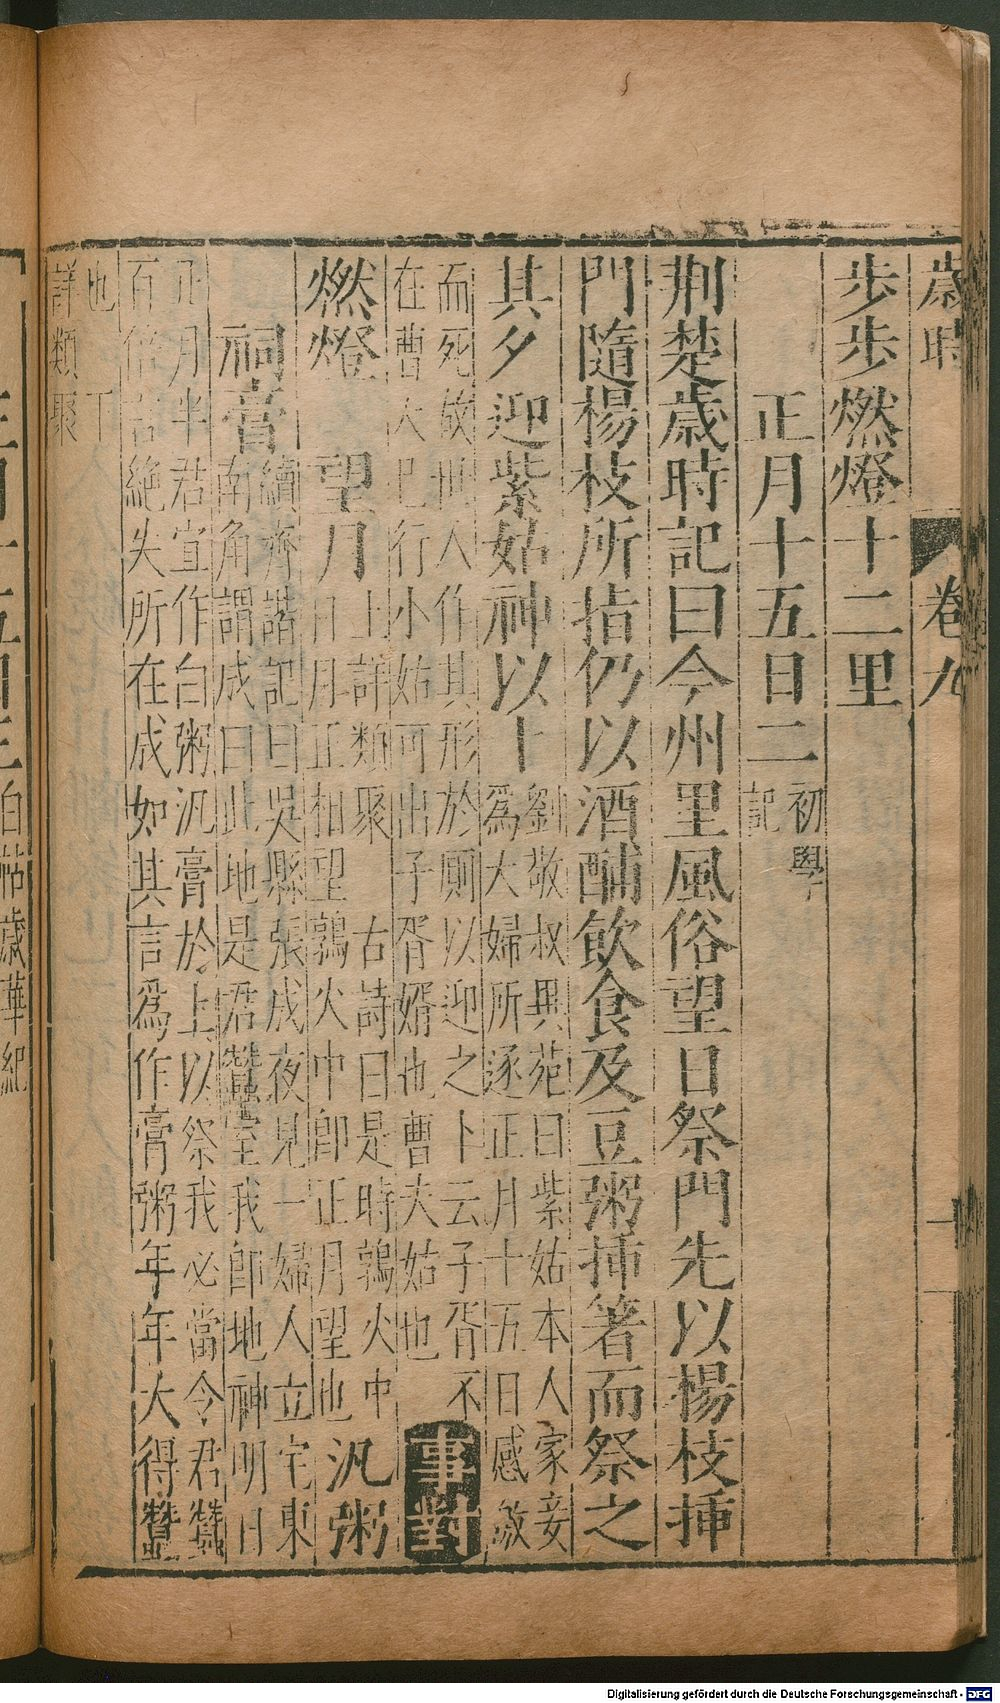 歳時　卷九
步步燃燈十二里
正月十五日二
初學
記
荆楚歲時記曰今州里風俗望日祭門先以楊枝挿
門隨楊枝所指仍以酒酺飲食及豆粥挿箸而祭之
其夕迎紫姑神以卜
劉敬叔異苑曰紫姑本人家妾
爲大婦所逐正月十五日感激
而死故世人作其形於厠以迎之卜云子胥不
在曹夫已行小姑可出子胥婿也曹夫姑也
事對
燃燈　望月
上詳類聚　古詩曰是時鶉火中
日月正相望鶉火中卽正月望也
汎粥
祠膏
續齊諧記曰吳縣張成夜見一婦人立宅東
南角謂成曰此地是君蠶室我卽地神明日
正月半君宜作白粥汎膏於上以祭我必當令君蠶
百倍言絶失所在成如其言爲作膏粥年年大得蠶
也
詳類聚
白帖歲華紀
Digitalisierung gefördert durch die Deutsche Forschungsgemeinschaft - DFG